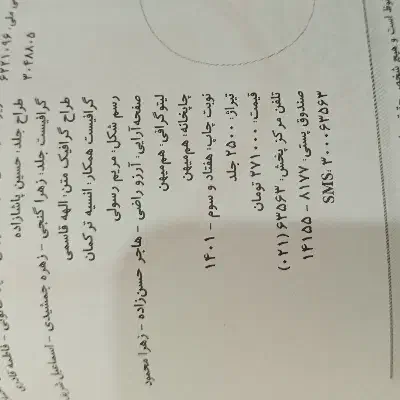 ۶۲۲۱۰۹۶
۳۰۴۸۸۰۵
طراح جلد: حسین پاشازاده
گرافیست جلد: زهرا گنجی - زهره جمشیدی - اسماعیل
طراح گرافیک متن: الهه قاسمی
گرافیست همکار: انسیه ترکمان
رسم شکل: مریم رسولی
صفحه‌آرایی: آرزو راضی - هاجر حسن‌زاده - زهرا محمود
لیتوگرافی: هم‌میهن
چاپخانه: هم‌میهن
نوبت چاپ: هفتاد و سوم - ۱۴۰۱
تیراژ: ۲۵۰۰ جلد
قیمت: ۲۷۱۰۰۰ تومان
تلفن مرکز پخش: ۶۳۵۶۳ (۰۲۱)
صندوق پستی: ۸۱۷۷ - ۱۴۱۵۵
SMS: ۳۰۰۰۶۳۵۶۳